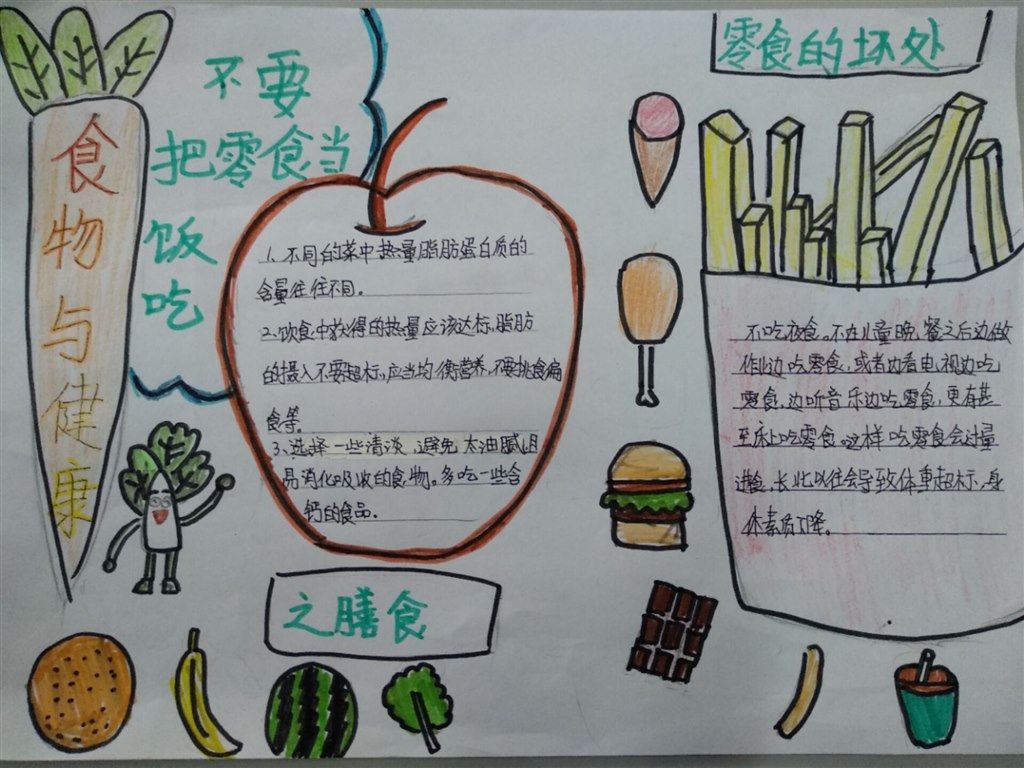 食物与健康
不要
把零食当
饭
吃
1、不同的菜中热量脂肪蛋白质的
含量往往不同。
2、饮食中获得的热量应该达标,脂肪
的摄入不要超标,应当均衡营养,不要挑食偏
食等。
3、选择一些清淡、避免太油腻且
易消化吸收的食物。多吃一些含
钙的食品。
之膳食
零食的坏处
不吃夜食。不在儿童晚餐之后边做
作业边吃零食,或者边看电视边吃
零食,边听音乐边吃零食,更有甚
至床上吃零食。这样吃零食会过量
进食,长此以往会导致体重超标,身
体素质下降。